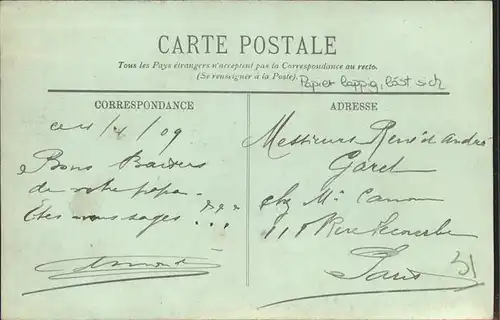 CARTE POSTALE
Tous les Pays étrangers n'acceptent pas la Correspondance au recto.
(Se renseigner à la Poste).
Papier lappig, löst sich
CORRESPONDANCE
ADRESSE
ce 4/4/09
Bons Baisers
de votre papa
Êtes vous sages...
Messieurs René et André
Garet
chez Mr Canon
118 Rue
Paris